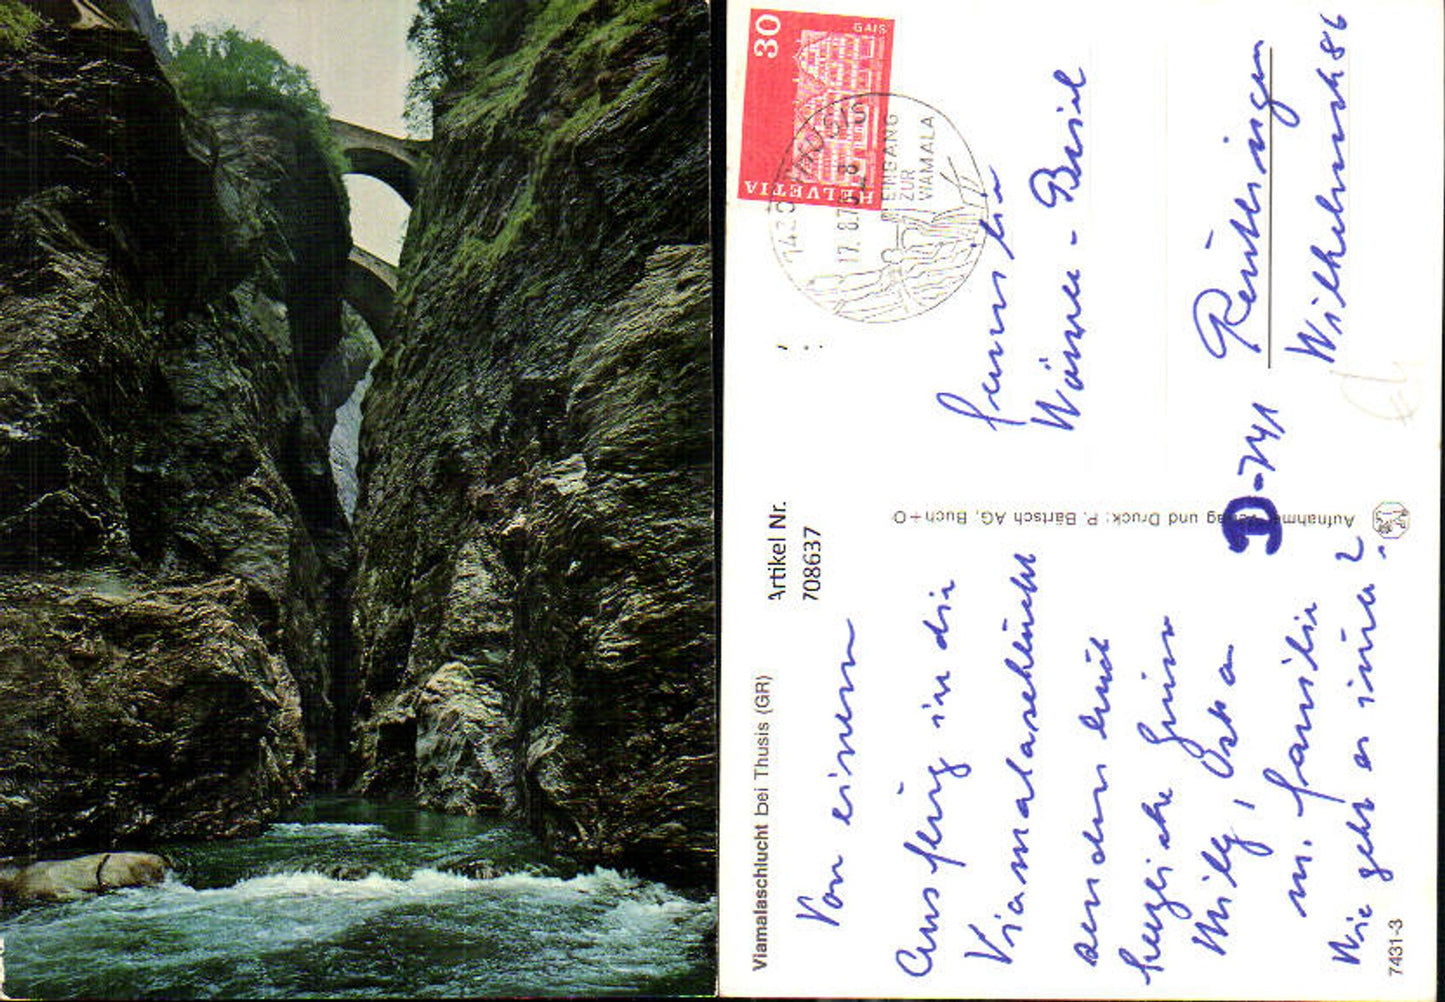 Viamalaschlucht bei Thusis (GR)
Artikel Nr.
708637
Von einem
Ausflug in die
Viamalaschlucht
senden Euch
herzliche Grüsse
Willy,
m. Familie
Wie geht es immer?
7431-3
Aufnahme, Verlag und Druck: P. Bärtsch AG, Buch+O
30
GAIS
HELVETIA
7430 THUSIS
17.8.7
EINGANG
ZUR
VIAMALA
Familie
Werner - Beisel
D-741
Reutlingen
Wilhelmstr. 86